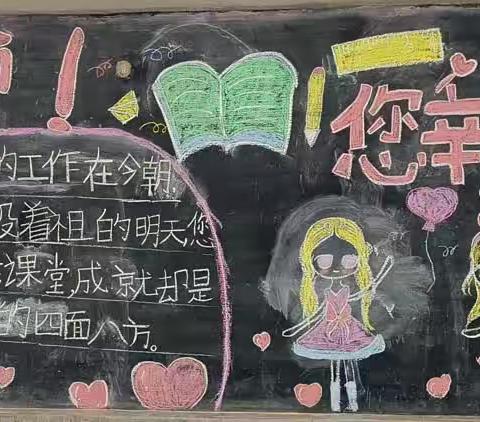 ！
您辛
的工作在今朝，
设着祖的明天您
课堂，成就却是
的四面八方。